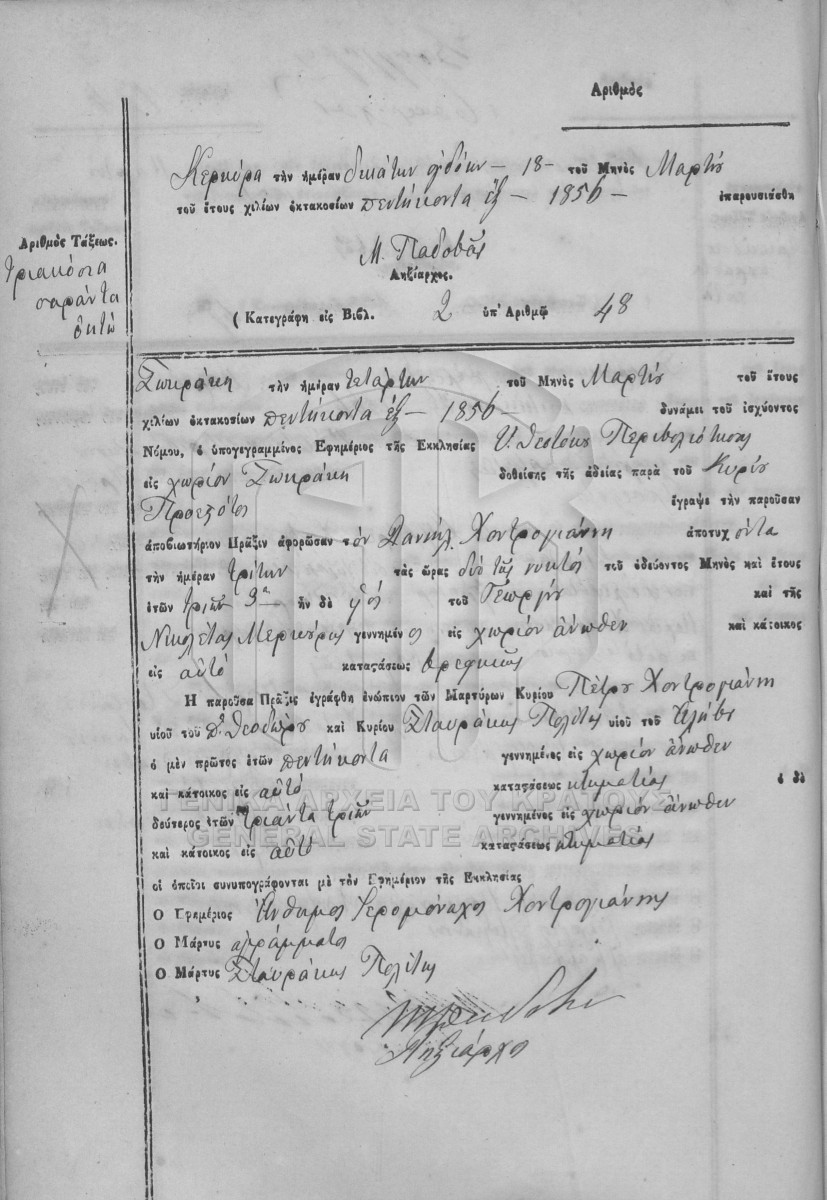 Αριθμὸς
Κερκύρα τὴν ἡμέραν δεκάτην ὀγδόην - 18 - τοῦ Μηνὸς Μαρτίου
τοῦ ἔτους χιλίων ὀκτακοσίων πεντήκοντα ἓξ - 1856 - ἐπαρουσιάσθη
Μ. Παδοβᾶς
Ληξίαρχος.
Αριθμὸς Τάξεως.
τριακόσια
σαράντα
ὀκτὼ
( Κατεγράφη εἰς Βιβλ. 2 ὑπ' Αριθμῷ 48
Σωκράκη τὴν ἡμέραν τετάρτην τοῦ Μηνὸς Μαρτίου τοῦ ἔτους
χιλίων ὀκτακοσίων πεντήκοντα ἓξ - 1856 - δυνάμει τοῦ ἰσχύοντος
Νόμου, ὁ ὑπογεγραμμένος Ἐφημέριος τῆς Ἐκκλησίας Υ. Θεοτόκου Περιβολιότισης
εἰς χωρίον Σωκράκη δοθείσης τῆς ἀδείας παρὰ τοῦ Κυρίου
Προεστότος ἔγραψε τὴν παροῦσαν
ἀποβιωτήριον Πρᾶξιν ἀφορῶσαν τὸν Δανιὴλ Χοντρογιάννη ἀποτυχόντα
τὴν ἡμέραν τρίτην τὰς ὥρας δύο τῆς νυκτός τοῦ ὁδεύοντος Μηνὸς καὶ ἔτους
ἐτῶν τριῶν 3 ἦν δὲ υἱός τοῦ Γεωργίου καὶ τῆς
Νικολέτας Μερκούρη γεννημένος εἰς χωρίον ἄνωθεν καὶ κάτοικος
εἰς αὐτό καταςάσεως βρεφικῶς
Η παροῦσα Πρᾶξις ἐγράφθη ἐνώπιον τῶν Μαρτύρων Κυρίου Πέτρου Χοντρογιάννη
υἱοῦ τοῦ Θεοδώρου καὶ Κυρίου Σταυράκης Πολίτης υἱοῦ τοῦ
ὁ μὲν πρῶτος ἐτῶν πεντήκοντα γεννημένος εἰς χωρίον ἄνωθεν
καὶ κάτοικος εἰς αὐτό καταςάσεως κτηματίας ὁ δὲ
δεύτερος ἐτῶν τριάντα τριῶν γεννημένος εἰς χωρίον ἄνωθεν
καὶ κάτοικος εἰς αὐτό καταςάσεως κτηματίας
οἱ ὁποῖοι συνυπογράφονται μὲ τὸν Ἐφημέριον τῆς Ἐκκλησίας
Ο Ἐφημέριος Ἄνθιμος Ἱερομόναχος Χοντρογιάννης
Ο Μάρτυς ἀγράμματος
Ο Μάρτυς Σταυράκης Πολίτης
Ληξίαρχος
ΓΕΝΙΚΑ ΑΡΧΕΙΑ ΤΟΥ ΚΡΑΤΟΥΣ
GENERAL STATE ARCHIVES